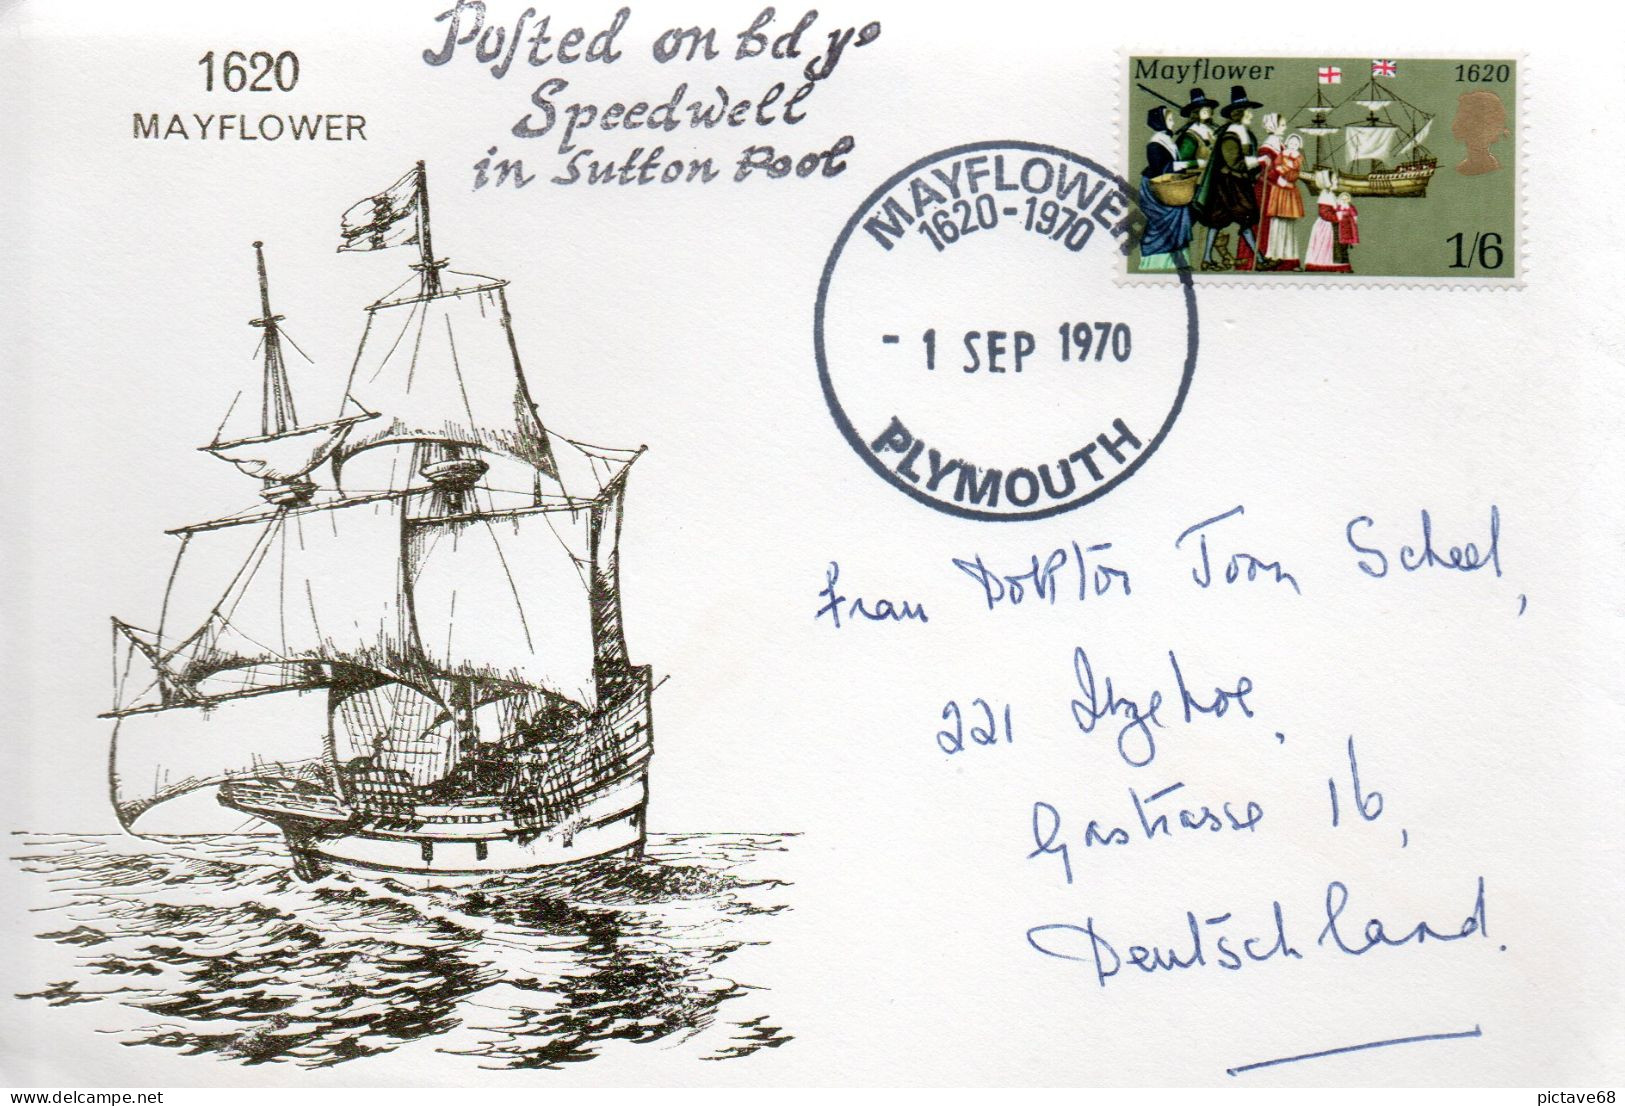 1620
MAYFLOWER
Posted on bd ye
Speedwell
in Sutton Pool
Mayflower 1620
1/6
MAYFLOWER
1620-1970
- 1 SEP 1970
PLYMOUTH
Frau Doktor Joan Scheel,
221 Itzehoe,
Gastrasse 16,
Deutschland.
pictave68